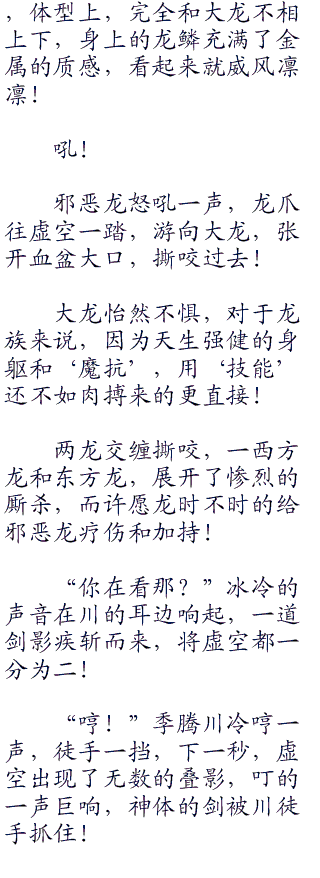 ，体型上，完全和大龙不相
上下，身上的龙鳞充满了金
属的质感，看起来就威风凛
凛！
吼！
邪恶龙怒吼一声，龙爪
往虚空一踏，游向大龙，张
开血盆大口，撕咬过去！
大龙怡然不惧，对于龙
族来说，因为天生强健的身
躯和‘魔抗’，用‘技能’
还不如肉搏来的更直接！
两龙交缠撕咬，一西方
龙和东方龙，展开了惨烈的
厮杀，而许愿龙时不时的给
邪恶龙疗伤和加持！
“你在看那？”冰冷的
声音在川的耳边响起，一道
剑影疾斩而来，将虚空都一
分为二！
“哼！”季腾川冷哼一
声，徒手一挡，下一秒，虚
空出现了无数的叠影，叮的
一声巨响，神体的剑被川徒
手抓住！